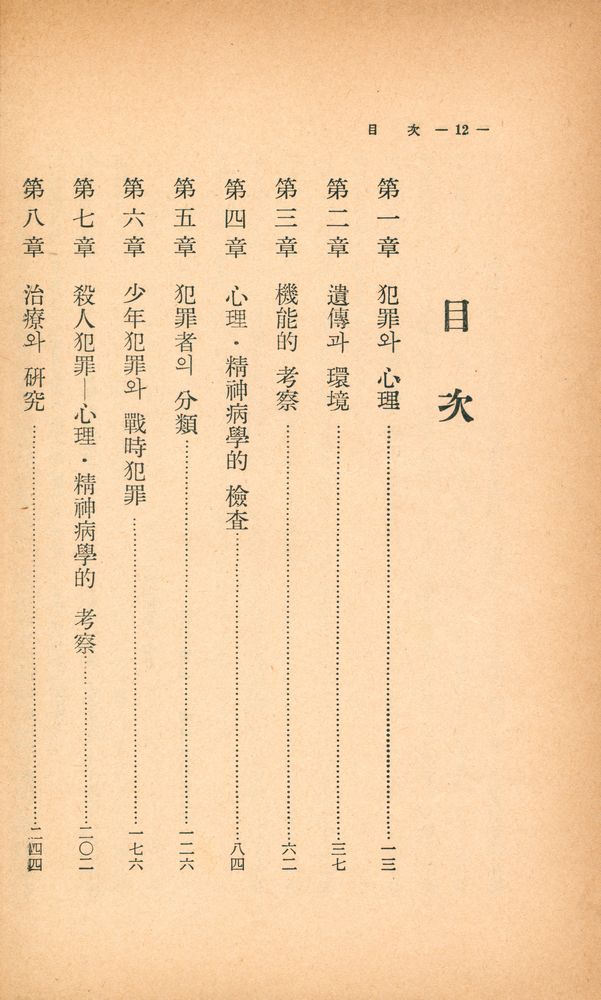 目 次 — 12 —
目 次
第一章 犯罪와 心理 一三
第二章 遺傳과 環境 三七
第三章 機能的 考察 六二
第四章 心理・精神病學的 檢査 八四
第五章 犯罪者의 分類 一二六
第六章 少年犯罪와 戰時犯罪 一七六
第七章 殺人犯罪—心理・精神病學的 考察 二〇二
第八章 治療와 硏究 二四四